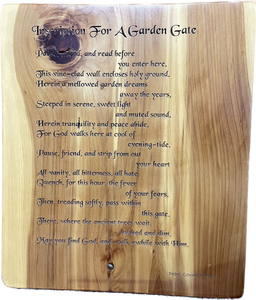 Inscription For A Garden Gate
Pause, friend, and read before
you enter here,
This vine-clad wall encloses holy ground,
Herein a mellowed garden dreams
away the years,
Steeped in serene, sweet light
and muted sound.
Herein tranquility and peace abide,
For God walks here at cool of
evening-tide.
Pause, friend, and strip from out
your heart
All vanity, all bitterness, all hate;
Quench, for this hour, the fever
of your fears,
Then treading softly, pass within
this gate.
There, where the ancient trees wait
and dim,
May you find God, and walk awhile with Him.